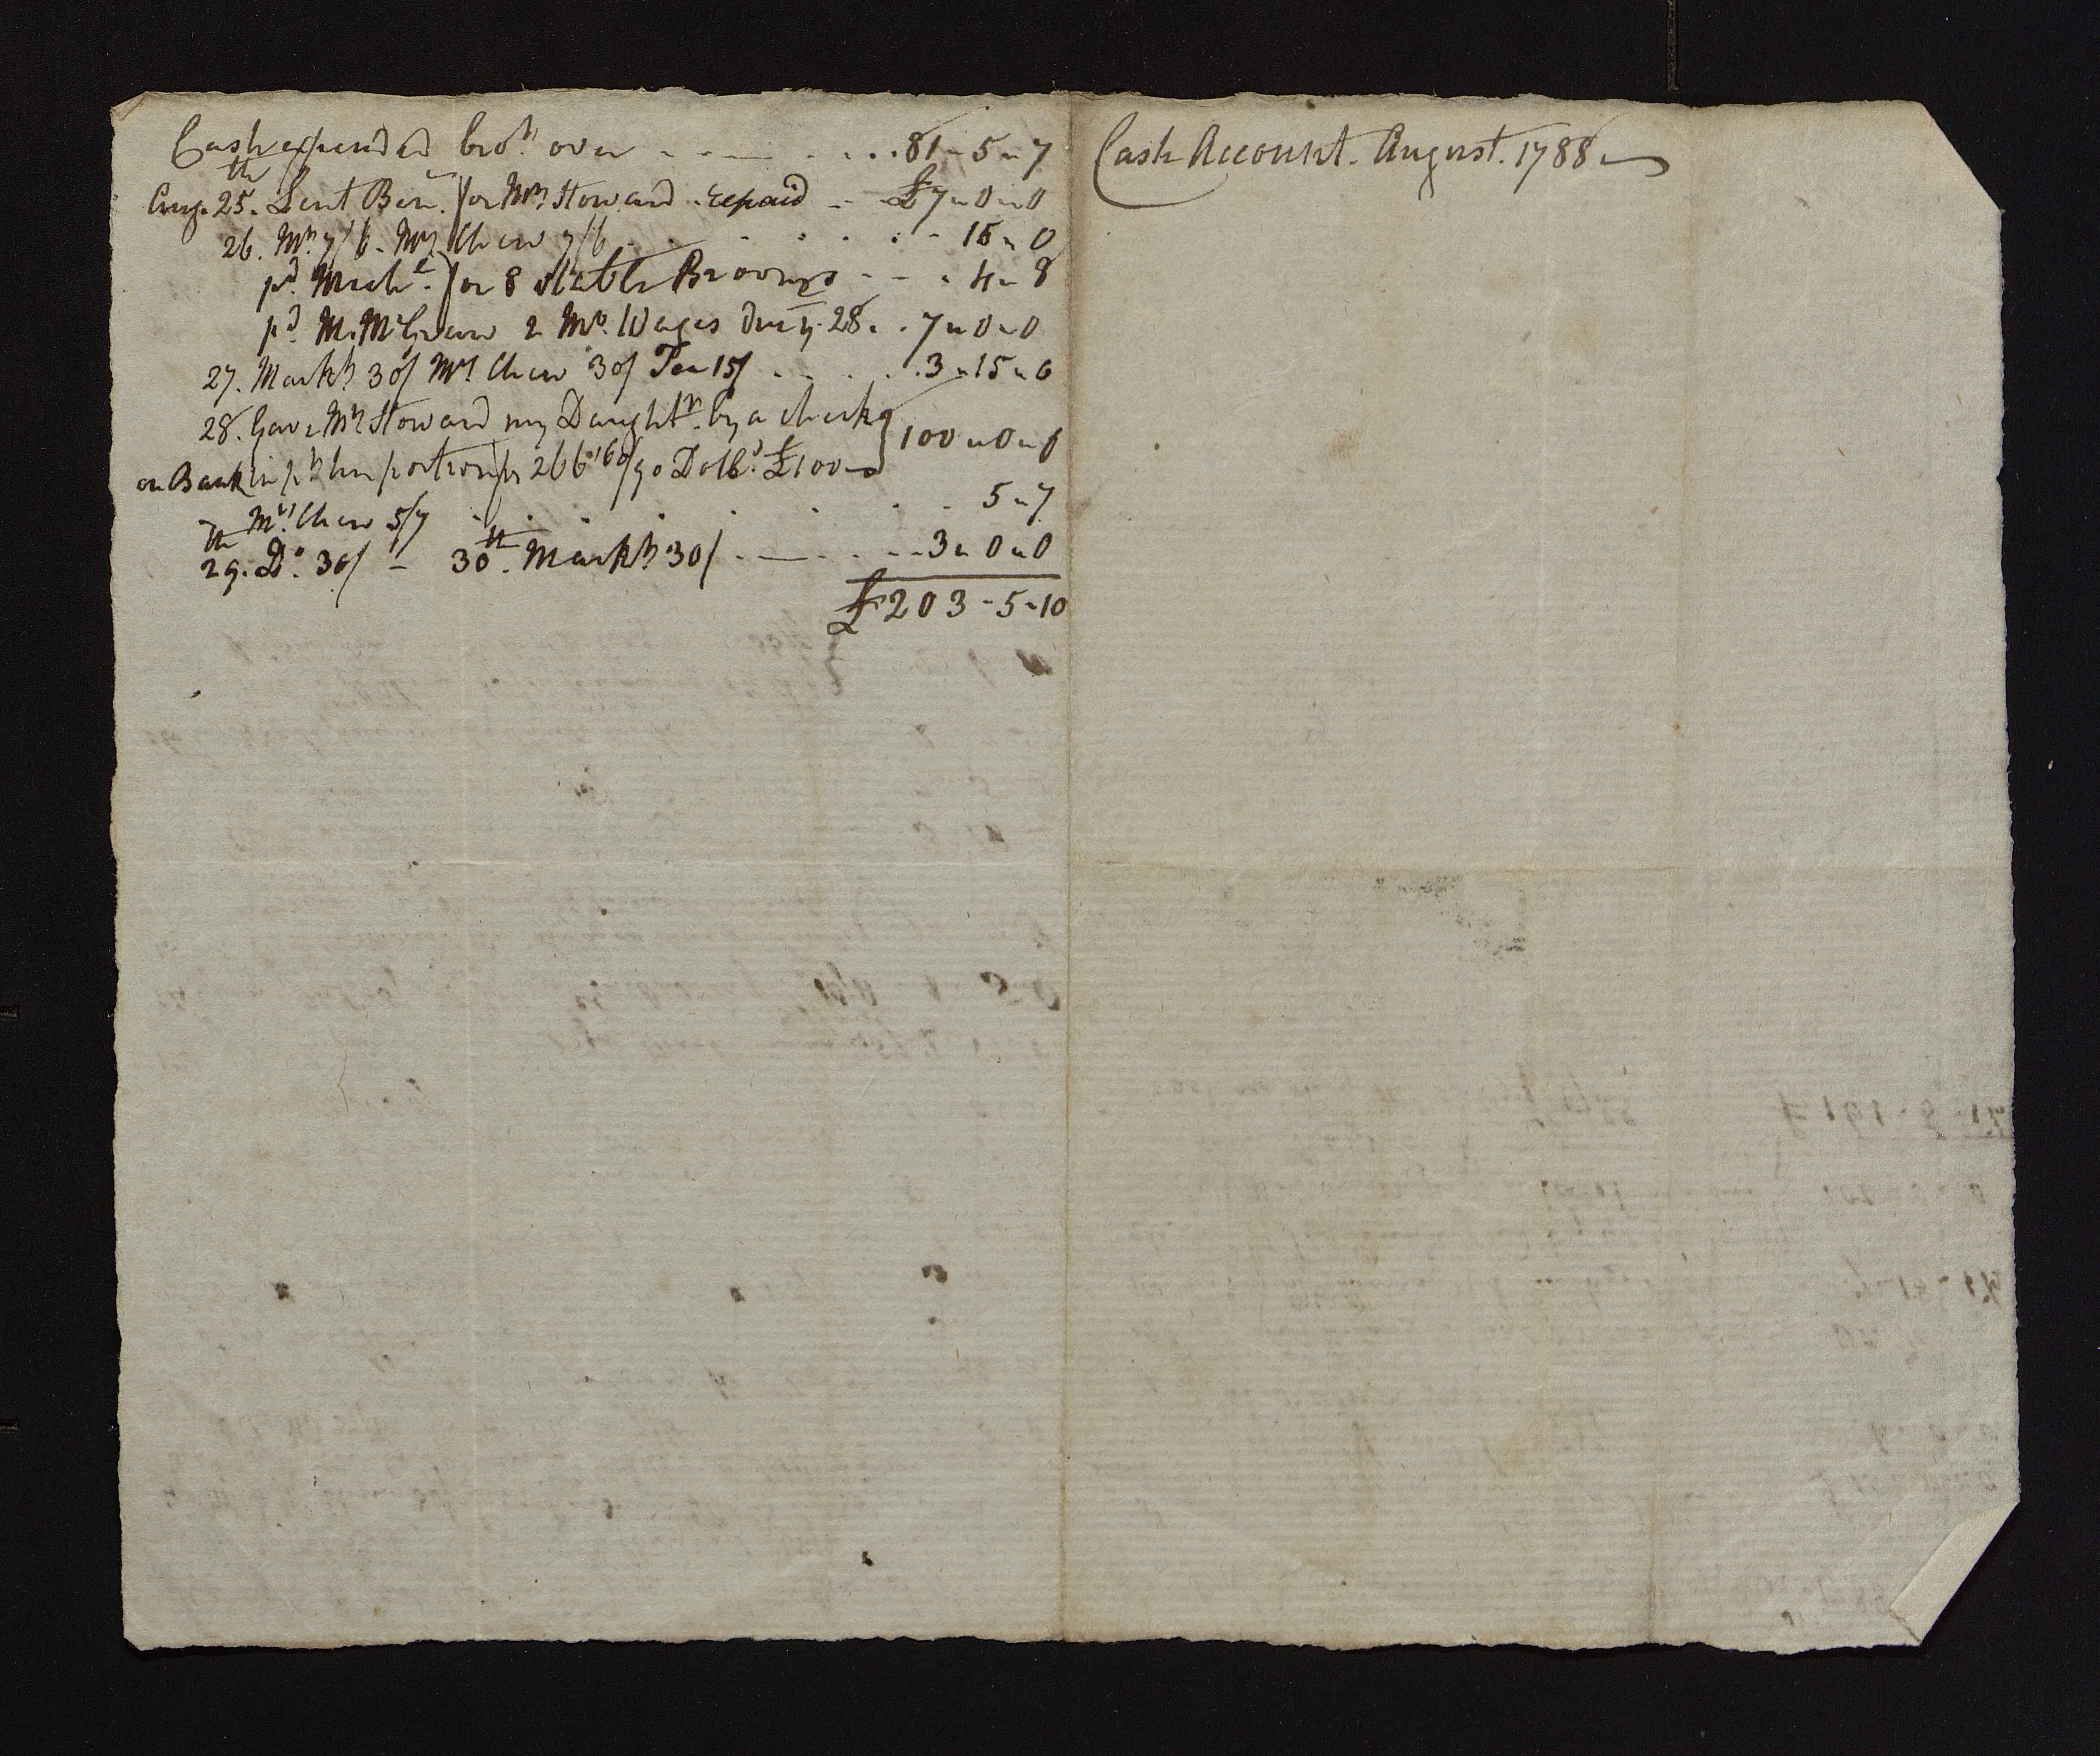 Cash expended bro.t over - - - - . . . . 81 - 5 - 7
Aug. 25.th Lent Ben. for Mrs Howard - repaid - - £7 - 0 - 0
26. Mr 7/6 - Mrs Chew 7/6 . . . . . . - 15 - 0
p.d Mich.l for 8 Stable Brooms - - - 4 - 8
p.d M. McGraw 2 Mo. Wages due y. 28. . 7 - 0 - 0
27. Markt 30/ Mrs Chew 30/ Tea 15/ . . . . . 3 - 15 - 0
28. Gave Mrs Howard my Daught.r by a check
on Bank in pt her portion for 266 60/90 Doll.s £100 - } 100 - 0 - 0
Mrs. Chew 5/7 . . . . . . . . 5 - 7
29.th D.o 30/ - 30.th Markt 30/ - - - - . . 3 - 0 - 0
£203 - 5 - 10
Cash Account. August. 1788